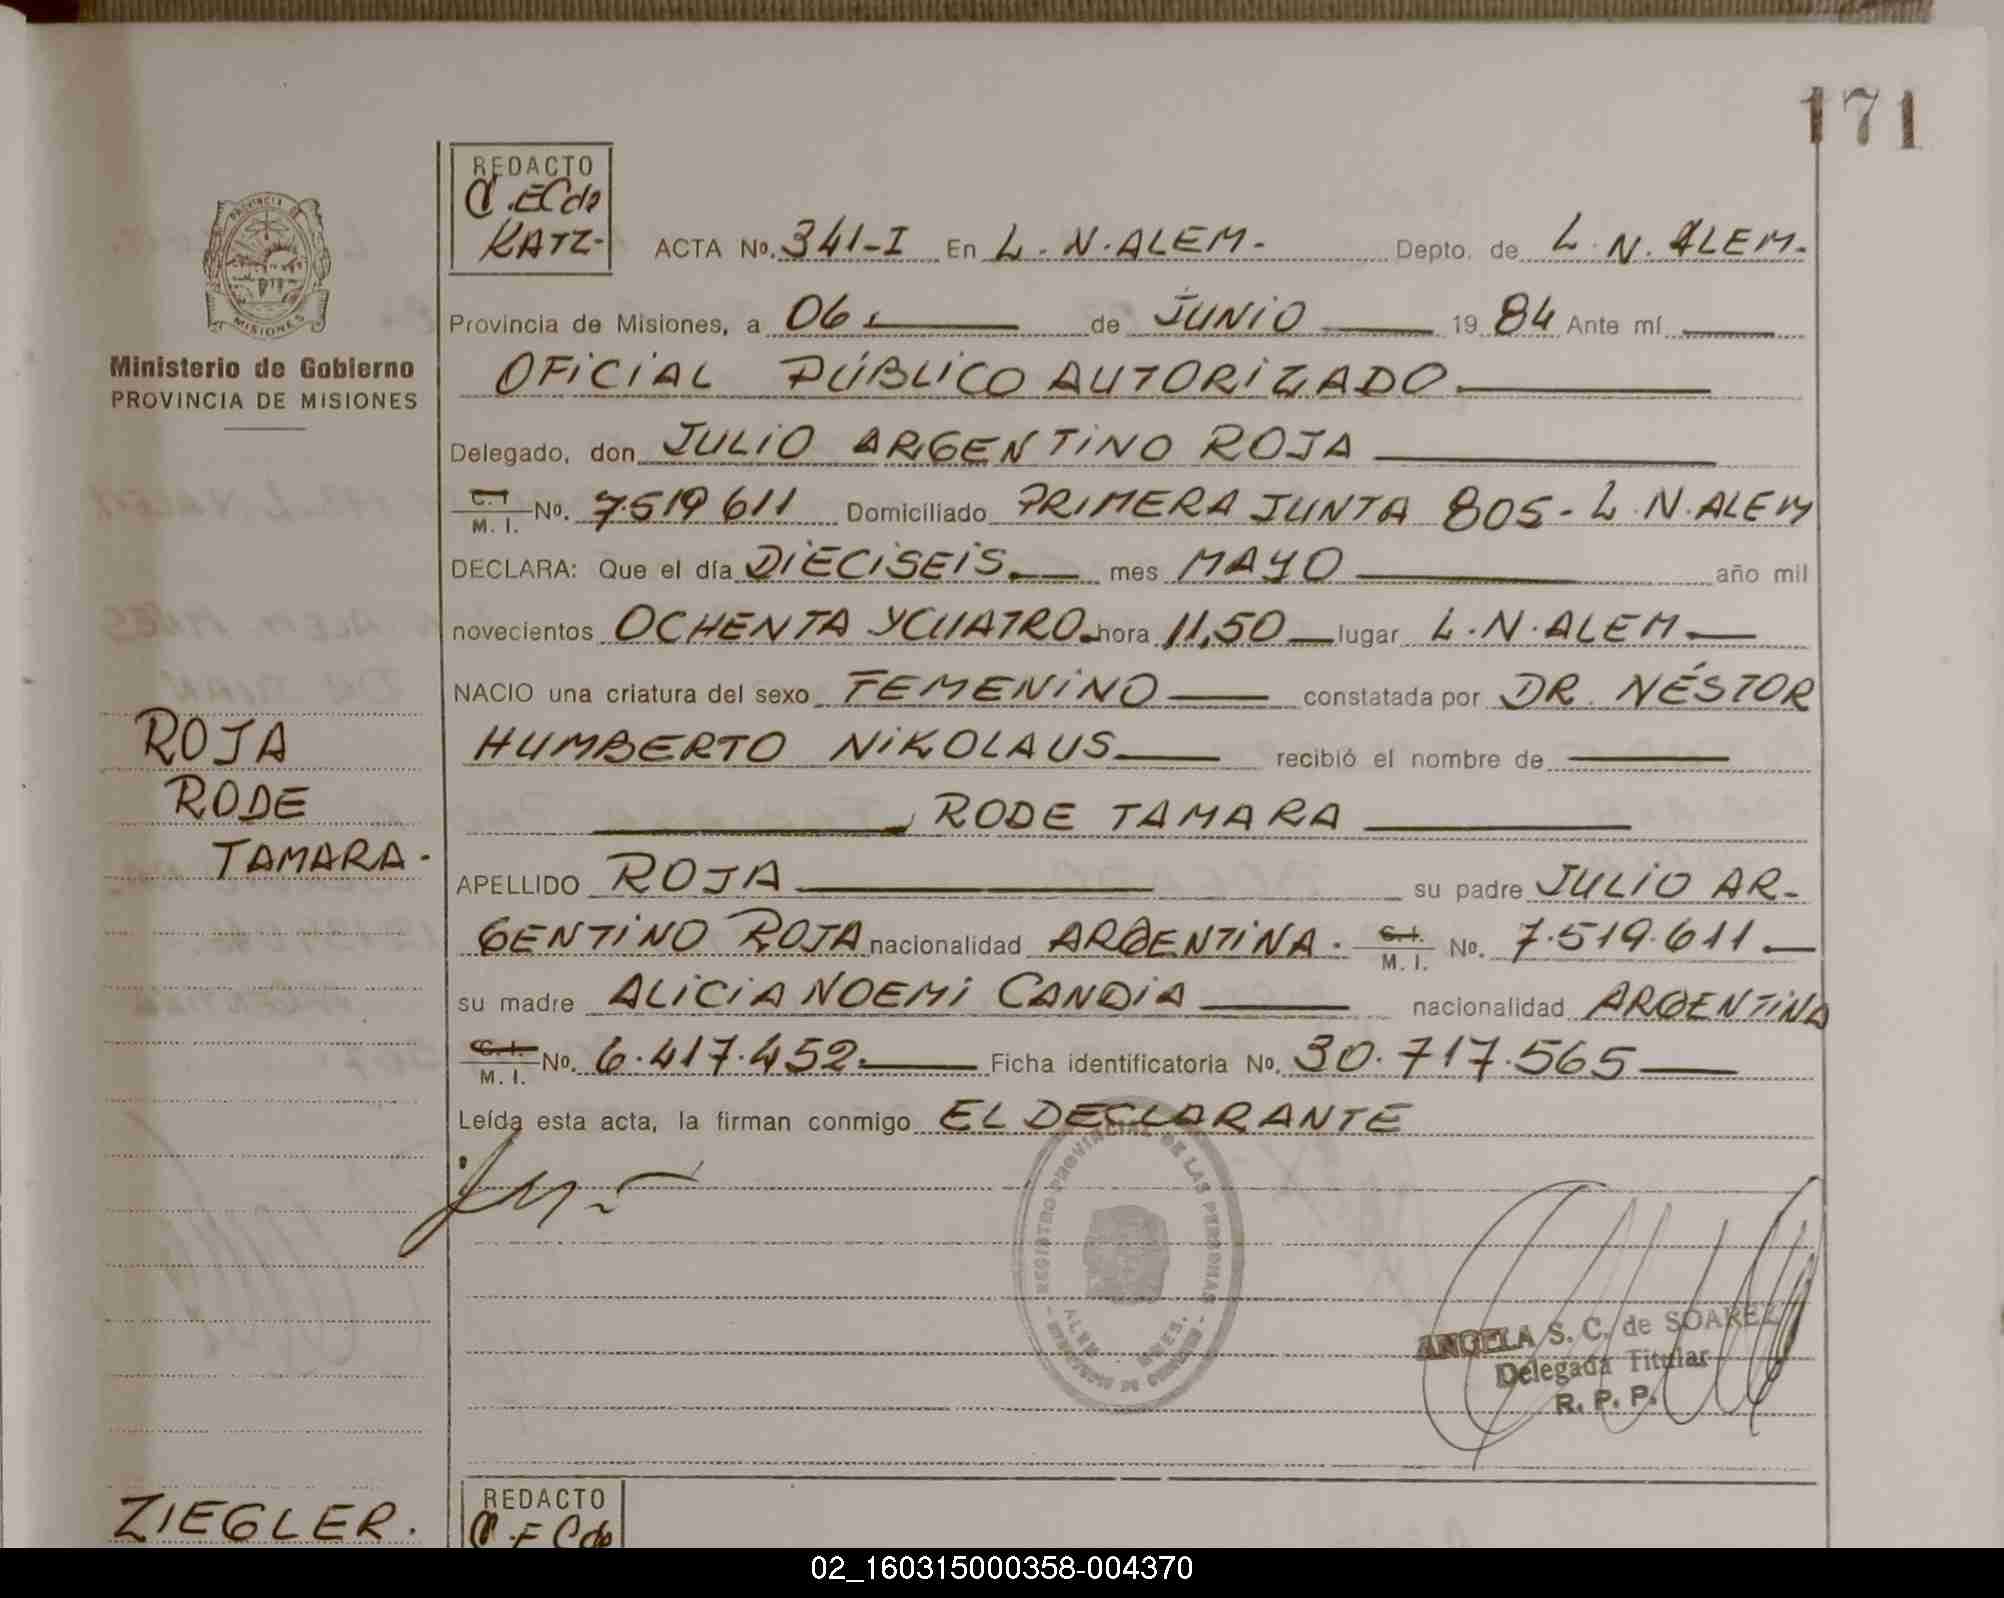 171
REDACTO
KATZ-
PROVINCIA DE
MISIONES
Ministerio de Gobierno
PROVINCIA DE MISIONES
ACTA No. 341-I En L. N. ALEM.- Depto. de L. N. ALEM.-
Provincia de Misiones, a 06 de JUNIO 19 84 Ante mí
OFICIAL PÚBLICO AUTORIZADO
Delegado, don JULIO ARGENTINO ROJA
C. I. M. I. No. 7.519 611 Domiciliado PRIMERA JUNTA 805 - L. N. ALEM
DECLARA: Que el día DIECISEIS mes MAYO año mil
novecientos OCHENTA Y CUATRO hora 11,50 lugar L. N. ALEM
NACIO una criatura del sexo FEMENINO constatada por DR. NÉSTOR
HUMBERTO NIKOLAUS recibió el nombre de
RODE TAMARA
APELLIDO ROJA su padre JULIO AR-
GENTINO ROJA nacionalidad ARGENTINA. C. I. M. I. No. 7.519.611
su madre ALICIA NOEMI CANDIA nacionalidad ARGENTINA
C. I. M. I. No. 6.417.452 Ficha identificatoria No. 30.717.565
Leída esta acta, la firman conmigo EL DECLARANTE
ROJA
RODE
TAMARA.
REGISTRO PROVINCIAL DE LAS PERSONAS
ALEM MNES.
ANGELA S. C. de SOAREZ
Delegada Titular
R. P. P.
ZIEGLER.
REDACTO
02_160315000358-004370